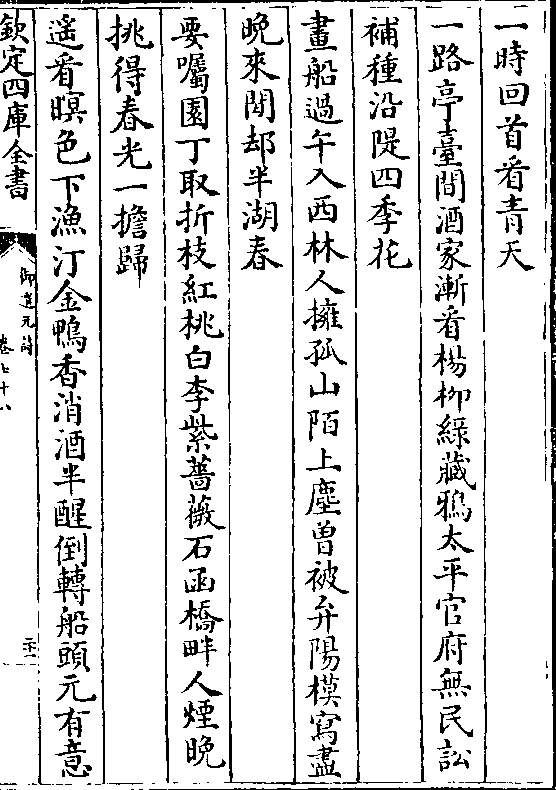 一時回首看青天
一路亭臺間酒家漸看楊柳緑藏鴉太平官府無民訟
補種沿隄四季花
畫船過午入西林人擁孤山陌上塵曽被弁陽模寫盡
晩來閒却半湖春
要囑園丁取折枝紅桃白李紫薔薇石函橋畔人煙晩
挑得春光一擔歸
遥看暝色下漁汀金鴨香消酒半醒倒轉船頭元有意
欽定四庫全書
御選元詩
卷七十八